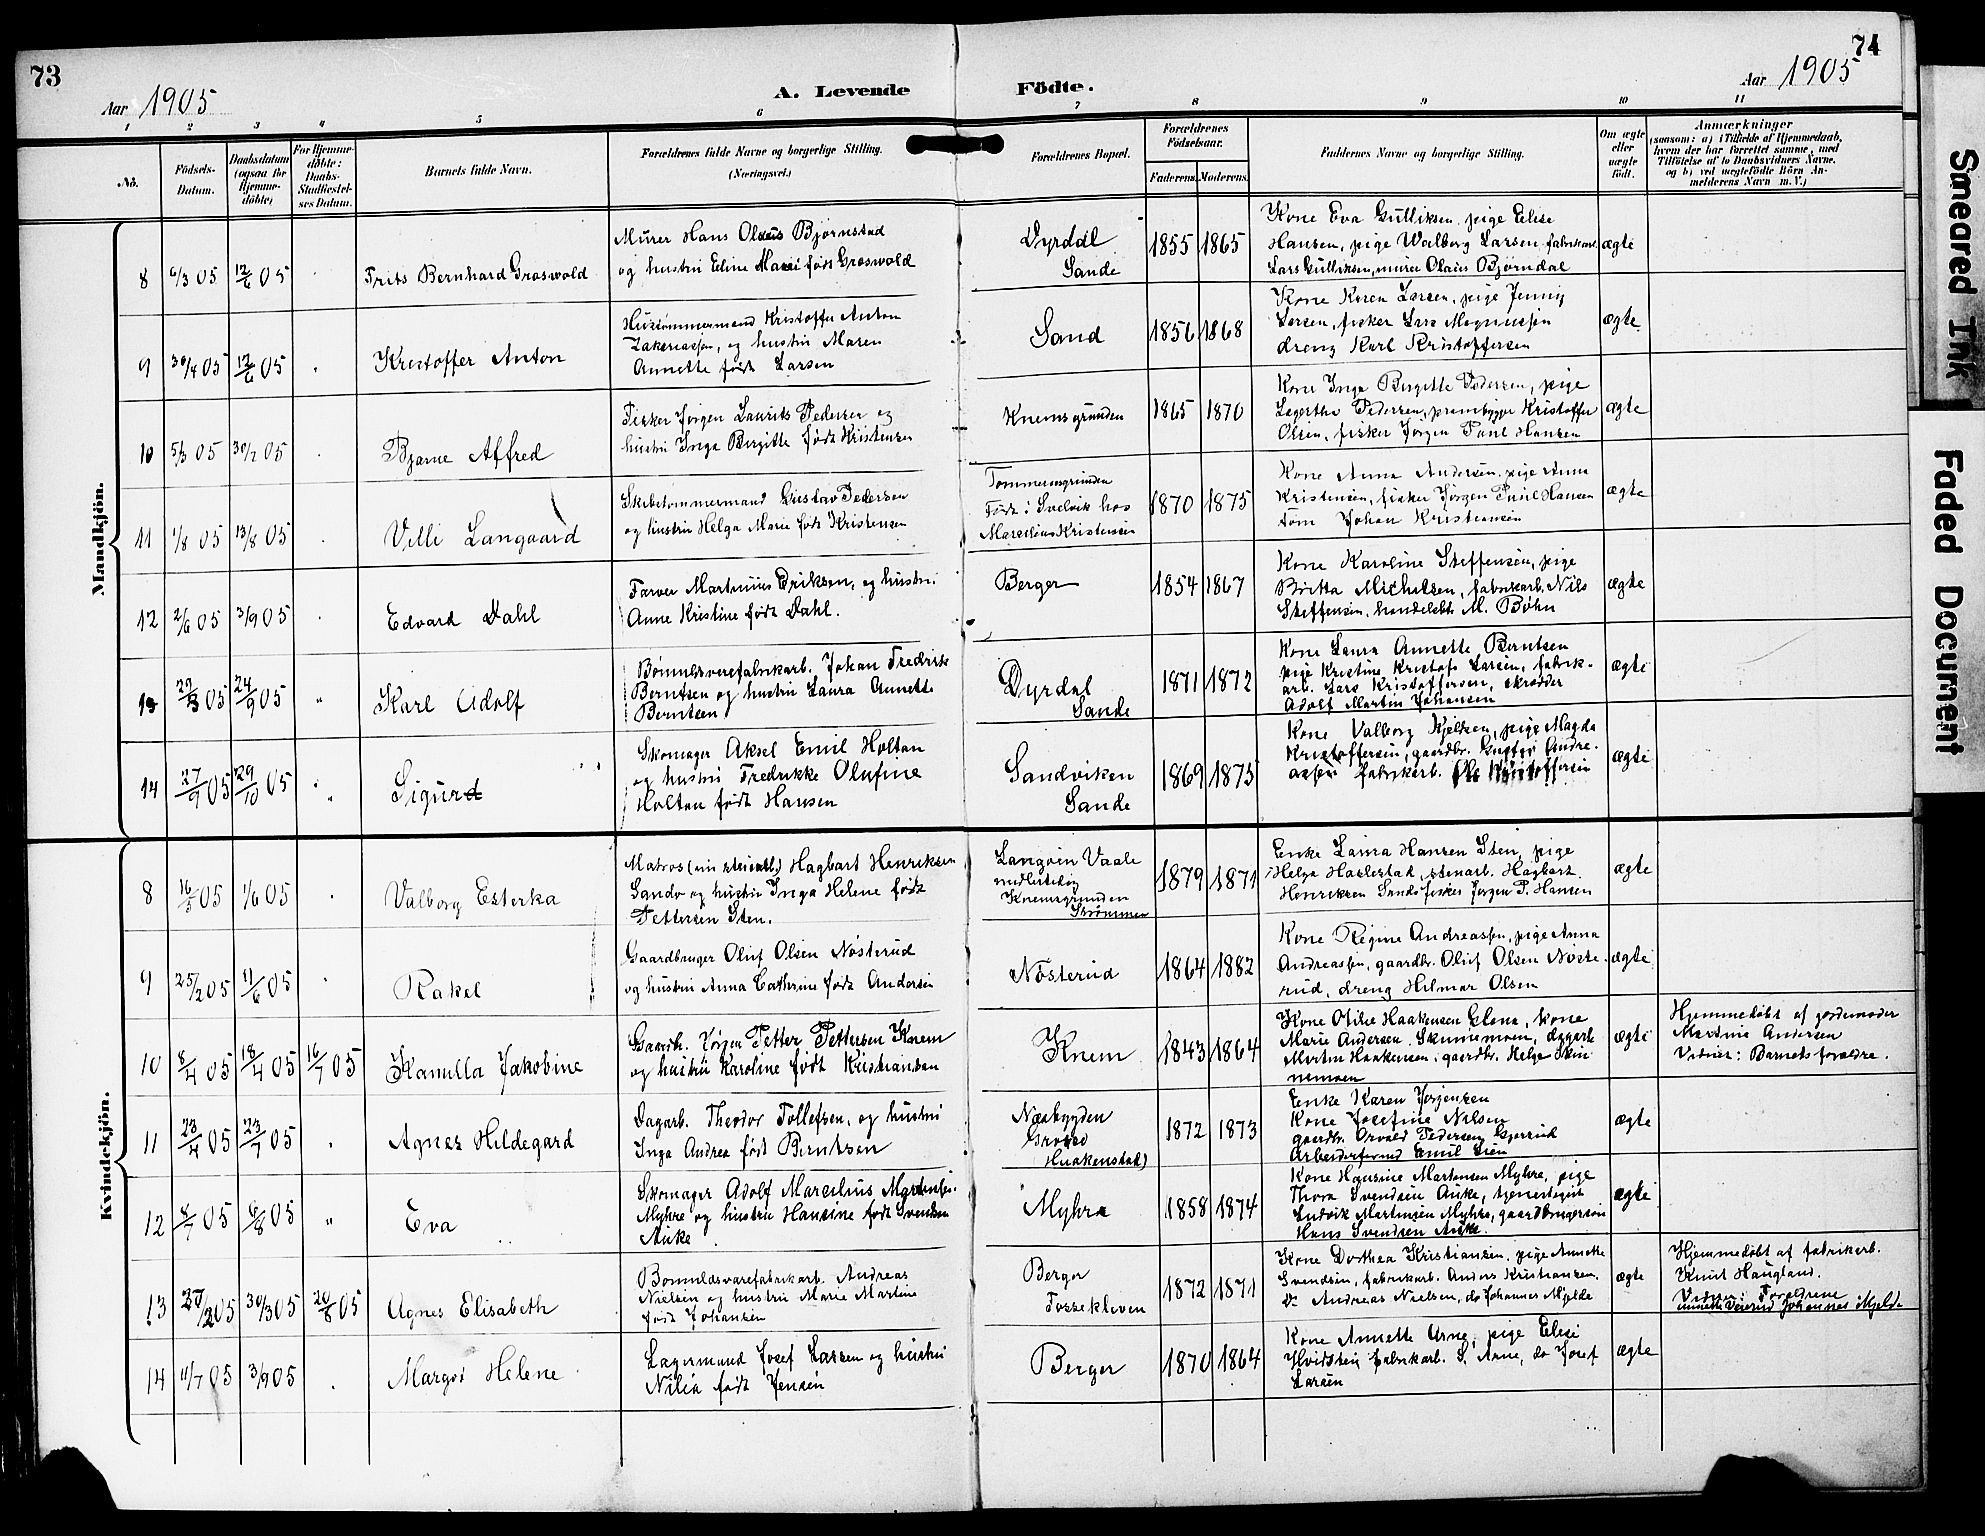 73
Aar 1905
A. Levende
Födte.
Aar 1905
74
1 2 3 4 5 6 7 8 9 10 11
No.
Födsels-
Datum.
Daabsdatum
(ogsaa for
Hjemme-
döbte)
For Hjemme-
döbte:
Daabs-
Stadfæstel-
ses Datum.
Barnets fulde Navn.
Forældrenes fulde Navne og borgerlige Stilling.
(Næringsvei.)
Forældrenes Bopæl.
Forældrenes
Födselsaar.
Faderens. Moderens.
Faddernes Navne og borgerlige Stilling.
Om ægte
eller
uægte
födt.
Anmærkninger
(saasom: a) i Tilfælde af Hjemmedaab,
hvem der har forrettet samme, med
Tilföielse af to Daabsvidners Navne,
og b) ved uægtefödte Börn An-
melderens Navn m. V.)
Mandkjön.
8 6/3 05 12/6 05 Frits Bernhard Graswold
Murer Hans Olaus Bjørnstad
og hustru Eline Marie født Graswold
Dyrdal
Sande
1855 1865
Kone Eva Gulliksen, pige Elise
Hansen, pige Walborg Larsen, fabrikand
Lars Gulliksen, murer Olaus Bjørndal
ægte
9 30/4 05 12/6 05 Kristoffer Anton
Hustømmermand Kristoffer Anton
Zakariassen, og hustru Maren
Annette født Larsen
Sand
1856 1868
Kone Karen Larsen, pige Jenny
Larsen, fisker Lars Magnussen
dreng Karl Kristoffersen
ægte
10 5/3 05 30/7 05 Bjarne Alfred
Fisker Jørgen Laurits Pedersen og
hustru Inga Bergitte født Kristensen
Knemsgrunden
1865 1870
Kone Inga Bergitte Pedersen, pige
Lagertha Pedersen, prambygger Kristoffer
Olsen, fisker Jørgen Paul Hansen
ægte
11 1/8 05 13/8 05 Villi Langaard
Skibstømmermand Gustav Pedersen
og hustru Helga Marie født Kristensen
Tommerasgrunden
Født i Svelvik hos
Marcelius Kristensen
1870 1875
Kone Anna Andersen, pige Anna
Kristensen, fisker Jørgen Paul Hansen
tøm Johan Kristiansen
ægte
12 2/6 05 3/9 05 Edvard Dahl
Farver Martinius Eriksen, og hustru
Anne Kristine født Dahl.
Berger
1854 1867
Kone Karoline Steffensen, pige
Britta Michelsen, fabrikarb. Nils
Steffensen, handelsbt. M. Bøhn
ægte
13 22/3 05 24/9 05 " Karl Adolf
Bomuldsvarefabrikarb. Johan Fredrik
Berntsen og hustru Laura Annette
Berntsen
Dyrdal
Sande
1871 1872
Kone Laura Annette Berntsen
pige Kristine Kristofa Larsen, fabrik-
arb. Lars Kristoffersen, skrædder
Adolf Martin Johansen
ægte
14 27/9 05 29/10 05 " Sigurd
Skomager Aksel Emil Holtan
og hustru Fredrikke Olufine
Holtan født Hansen
Sandviken
Sande
1869 1875
Kone Valborg Kjeldsen, pige Magda
Kristoffersen, gaardbr. Gustav Andre-
assen fabrikarb. Ole Kristoffersen
ægte
Kvindekjön.
8 16/5 05 1/6 05 Valborg Esterka
Matros Hagbart Henriksen
Sando og hustru Inga Helene født
Pettersen Sten.
Langøen Vaale
midlertidig
Knemsgrunden
Strømmen
1879 1871
Enke Laura Hansen Sten, pige
Helga Haslestad, stenarb. Hagbart
Henriksen Sando fisker Jørgen P. Hansen
ægte
9 25/2 05 11/6 05 Rakel
Gaardbruger Oluf Olsen Nøsterud
og hustru Anna Cathrine født Andersen
Nøsterud
1864 1882
Kone Regine Andreassen, pige Anna
Andreassen, gaardbr. Oluf Olsen Nøste-
rud, dreng Hilmar Olsen
ægte
10 8/4 05 18/4 05 16/7 05 Kamilla Jakobine
Gaardb. Jørgen Petter Pettersen Knem
og hustru Karoline født Kristiansen
Knem
1843 1864
Kone Otilie Haakensen Elena, kone
Marie Andersen Skinnemoen, dagarb
Martin Haakensen, gaardbr. Helge Skin-
nemoen
ægte
Hjemmedøbt af jordemoder
Martine Andersen
Vidner: Barnets forældre.
11 23/4 05 23/7 05 Agnes Hildegard
Dagarb. Theodor Tollefsen, og hustru
Inga Andrea født Berntsen
Næsbygden
Haakenstad)
1872 1873
Enke Karen Jørgensen
Kone Josefine Nilsen
gaardbr. Orvald Pedersen Gjerrud
Arbeidsformd Emil Lien
ægte
12 8/7 05 6/8 05 " Eva
Skomager Adolf Marcelius Martinsen
Myhre og hustru Hansine født Svendsen
Auke
Myhre
1858 1874
Kone Hansine Martinsen Myhre, pige
Thora Svendsen Auke, tjenestegut
Ludvik Martinsen Myhre, gaardbrugersøn
Hans Svendsen Auke.
ægte
13 27/2 05 30/3 05 20/8 05 Agnes Elisabeth
Bomuldsvarefabrikarb. Andreas
Nielsen og hustru Marie Martine
født Johansen
Berger
Fossekleven
1872 1871
Kone Dorthea Kristiansen, pige Annette
Svendsen, fabrikarb. Anders Kristiansen,
Do Andreas Nielsen, do Johannes Mjelde
ægte
Hjemmedøbt af fabrikarb.
Knut Haugland.
Vidner: Forældrene
Johannes Mjelde
14 11/7 05 3/9 05 Margot Helene
Lagermand Josef Larsen og hustru
Nilia født Jensen
Berger
1870 1864
Kone Annette Arne, pige Elise
Hvidsten fabrikarb. S. Arne, do Josef
Larsen
ægte
Smeared Ink
Faded Document